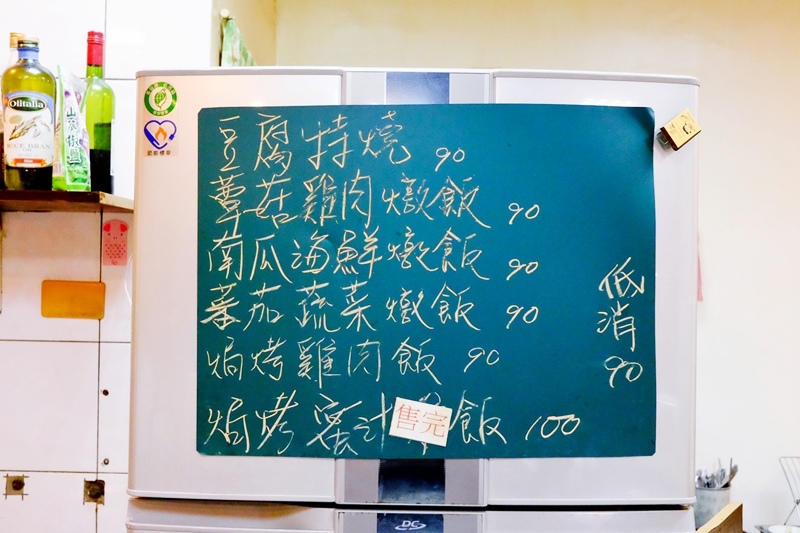 豆腐特燒 90
蕈菇雞肉燉飯 90
南瓜海鮮燉飯 90
蕃茄蔬菜燉飯 90
焗烤雞肉飯 90
焗烤蜜汁 飯 100
售完
低消
90
Olitalia
山葵椒鹽
節能標章
DC